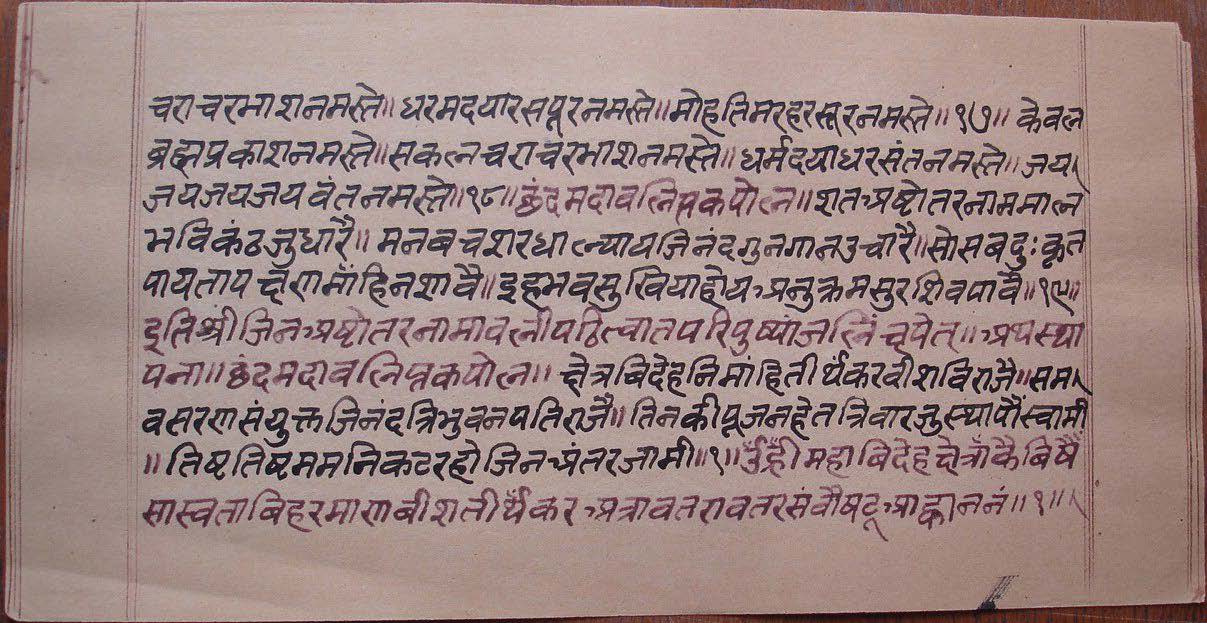 चराचरभाशनमस्ते॥ धरमदयारसपूरनमस्ते॥ मोहतिमरहरसूरनमस्ते॥१७॥ केवल
ब्रह्मप्रकाशनमस्ते॥ सकलचराचरभाशनमस्ते॥ धर्मदयाधरसंतनमस्ते॥ जय
जयजयजयवंतनमस्ते॥१८॥ छंदमदावलिप्तकपोल॥ शतअष्टोतरनाममाल
भविकंठजुधारै॥ मनबचशरधाल्यायजिनंदगुनगानउचारै॥ सोसबदुःकृत
पायतापछैणमाँहिनशावै॥ इहभवसुखियाहोयअनुक्रमसुरशिवपावै॥१९॥
इतिश्रीजिनअष्टोतरनामावलीपठित्वातपरिपुष्पांजलिंछपेत्॥ अथस्था
पना॥ छंदमदावलिप्तकपोल॥ छेत्रबिदेहनिमांहितीर्थंकरवीशविराजै॥ सम
वसरणसंयुक्तजिनंदत्रिभुवनपतिराजै॥ तिनकीपूजनहेतत्रिवारजुस्थापौंस्वामी
॥ तिष्टतिष्टममनिकटरहोजिनअंतरजामी॥१॥ उँह्रीँमहाबिदेहछेत्राँकैबिषैँ
सास्वताबिहरमाणबीशतीर्थँकरअत्रावतरावतरसंवौषट्आह्वाननं॥१॥